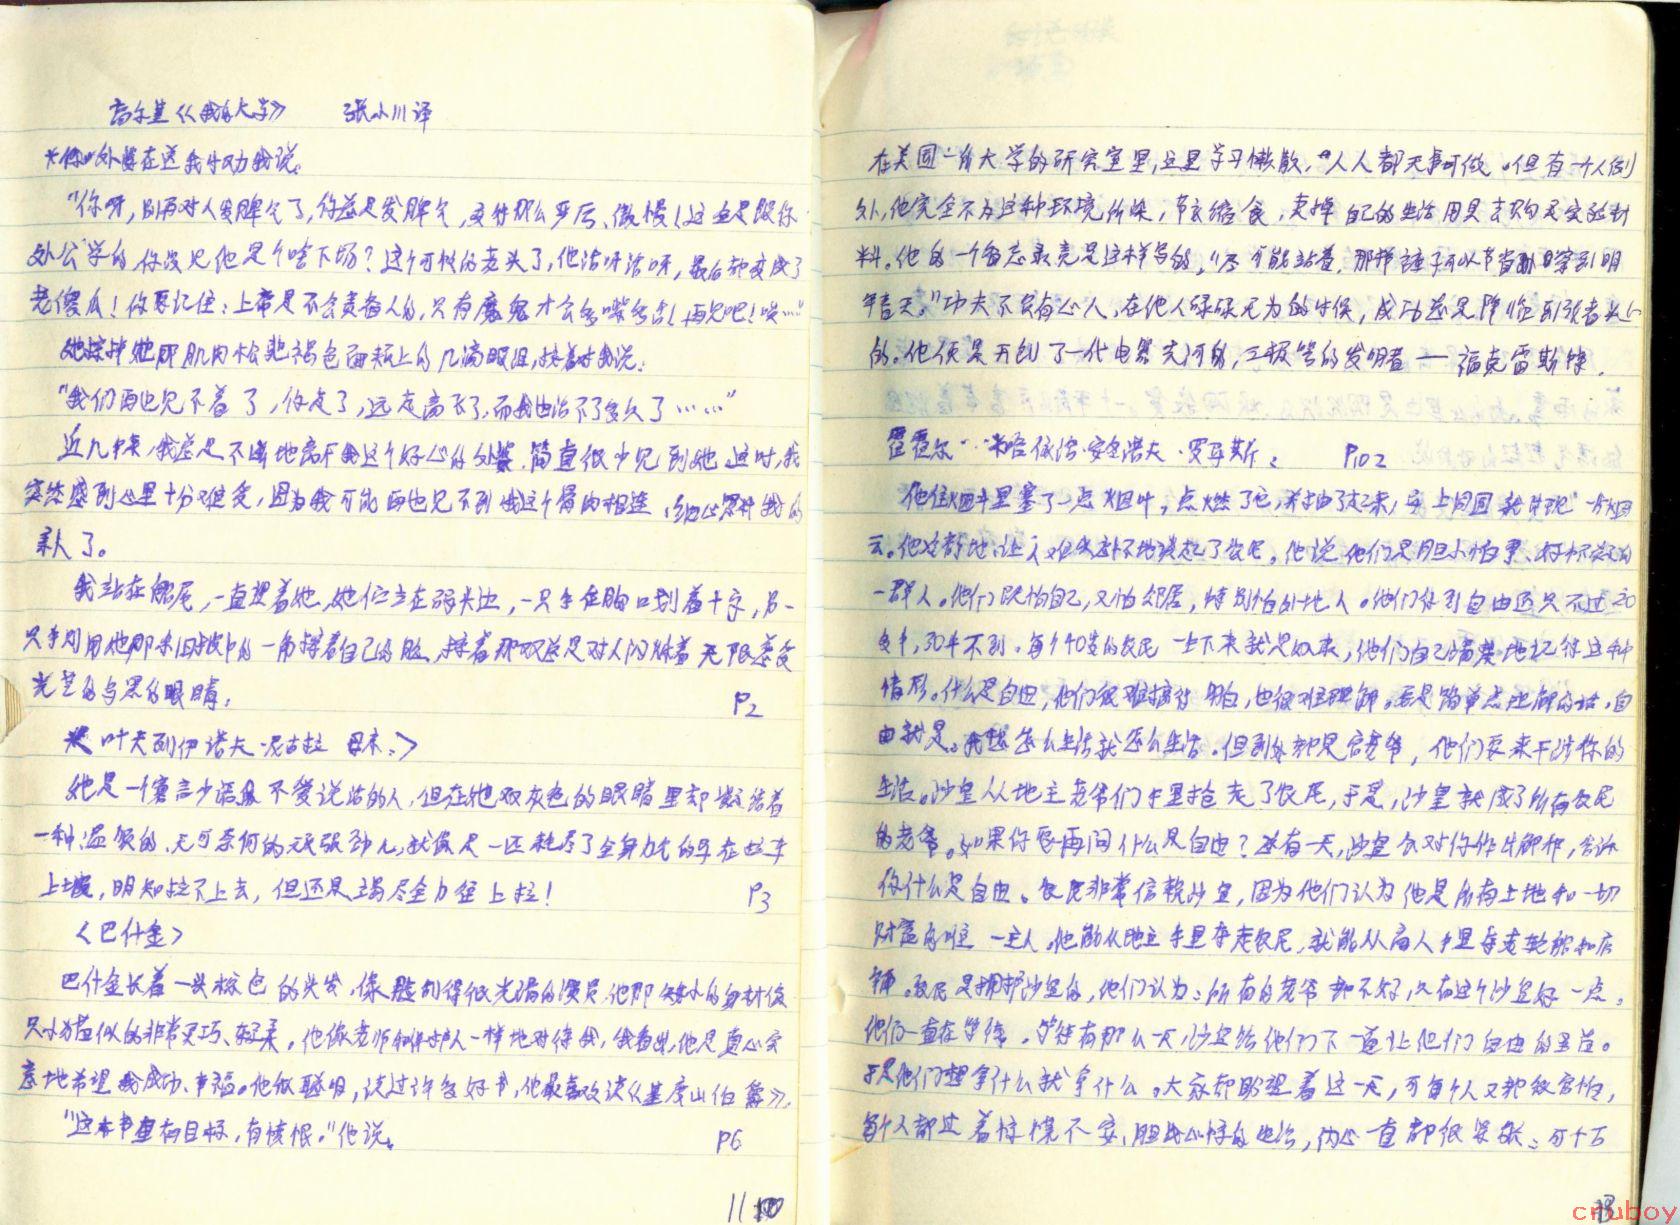 高尔基《我的大学》 张小川译
外婆在送我时劝我说:
"你呀,别再对人发脾气了,你总是发脾气,变得那么严厉、傲慢!这也是跟你
外公学的,你没见他是个啥下场?这个可怜的老头了,他活呀活呀,最后却变成了
老傻瓜!你要记住:上帝是不会责备人的,只有魔鬼才会多嘴多舌!再见吧!唉……"
她擦掉她那肌肉松弛褐色面颊上的几滴眼泪,接着对我说:
"我们再也见不着了,你走了,远走高飞了,而我也活不了多久了……"
近几年来,我总是不断地离开我这个好心的外婆,简直很少见到她,这时,我
突然感到心里十分难受,因为我可能再也见不到我这个骨肉相连、的
亲人了。
我站在船尾,一直望着她,她伫立在码头边,一只手在胸口划着十字,另一
只手则用她那条旧披巾的一角擦着自己的脸、擦着那双总是对人们怀着无限慈爱
光芒的乌黑的眼睛。 P2
叶夫列伊诺夫·尼古拉 母亲:>
她是一个寡言少语又不爱说话的人,但在她双灰色的眼睛里却凝结着
一种温顺的、无可奈何的顽强劲儿,就像是一匹耗尽了全身力气的马在拉车
上坡,明知拉不上去,但还是竭尽全力往上拉! P3
<巴什金>
巴什金长着一头棕色的头发,像脸刮得很光滑的演员,他那矮小的身材像
只小猫似的非常灵巧、轻柔。他像老师和保护人一样地对待我,我看出,他是真心实
意地希望我成功、幸福。他很聪明,读过许多好书,他最喜欢读《基度山伯爵》。
"这本书里有目标,有愤恨。"他说。 P6
11
在美国一所大学的研究室里,这里学习懒散,人人都无事可做。但有一个人例
外,他完全不为这种环境所染,节衣缩食,卖掉自己的生活用具去购买实验材
料。他的一个备忘录竟是这样写的,"尽可能站着,那样裤子可以节省到明
年春天。"功夫不负有心人,在他人碌碌无为的时候,成功还是降临到强者头上
的。他便是开创了一代电器先河的,三极管的发明者——福克雷斯特。
霍霍尔··米哈依洛·安东诺夫·罗马斯: P102
他往烟斗里塞了一点烟叶,点燃了它,并抽了起来,马上周围就出现一片烟
云。他冷静地、让人难忘地谈起了农民。他说他们是胆小怕事、
一群人。他们既怕自己,又怕邻居,特别怕外地人。他们得到自由还只不过20
多年,30年不到。每个40岁的农民一生下来就是奴隶,他们自己清楚地记得这种
情形。什么是自由,他们很难搞得明白,也很难理解。若是简单点理解的话,自
由就是。我想怎么生活就怎么生活。但到处都是官老爷,他们要来干涉你的
生活。沙皇从地主老爷们手里抢走了农民,于是,沙皇就成了所有农民
的老爷。如果你要再问什么是自由?总有一天,沙皇会对你作出解释,告诉
你什么是自由。农民非常信赖沙皇,因为他们认为他是所有土地和一切
财富的唯一主人。他能从地主手里夺走农民,就能从商人手里夺走轮船和店
铺。农民是拥护沙皇的,他们认为:所有的老爷都不好,只有这个沙皇好一点。
他们一直在等待。等待有那么一天,沙皇给他们下一道让他们自由的圣旨。
于是他们想拿什么就拿什么。大家都盼望着这一天,可每个人又都很害怕,
每个人都过着惊慌不安、胆战心惊的生活,内心一直都很紧张:可千万
cnuboy